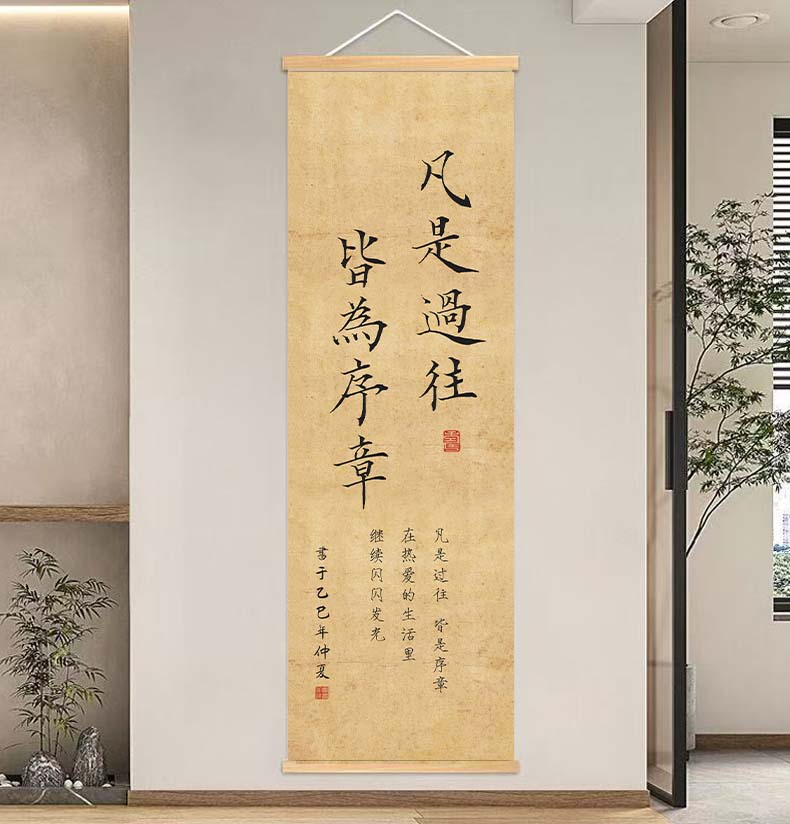 凡是過往
皆為序章
凡是过往 皆是序章
在热爱的生活里
继续闪闪发光
書于乙巳年仲夏